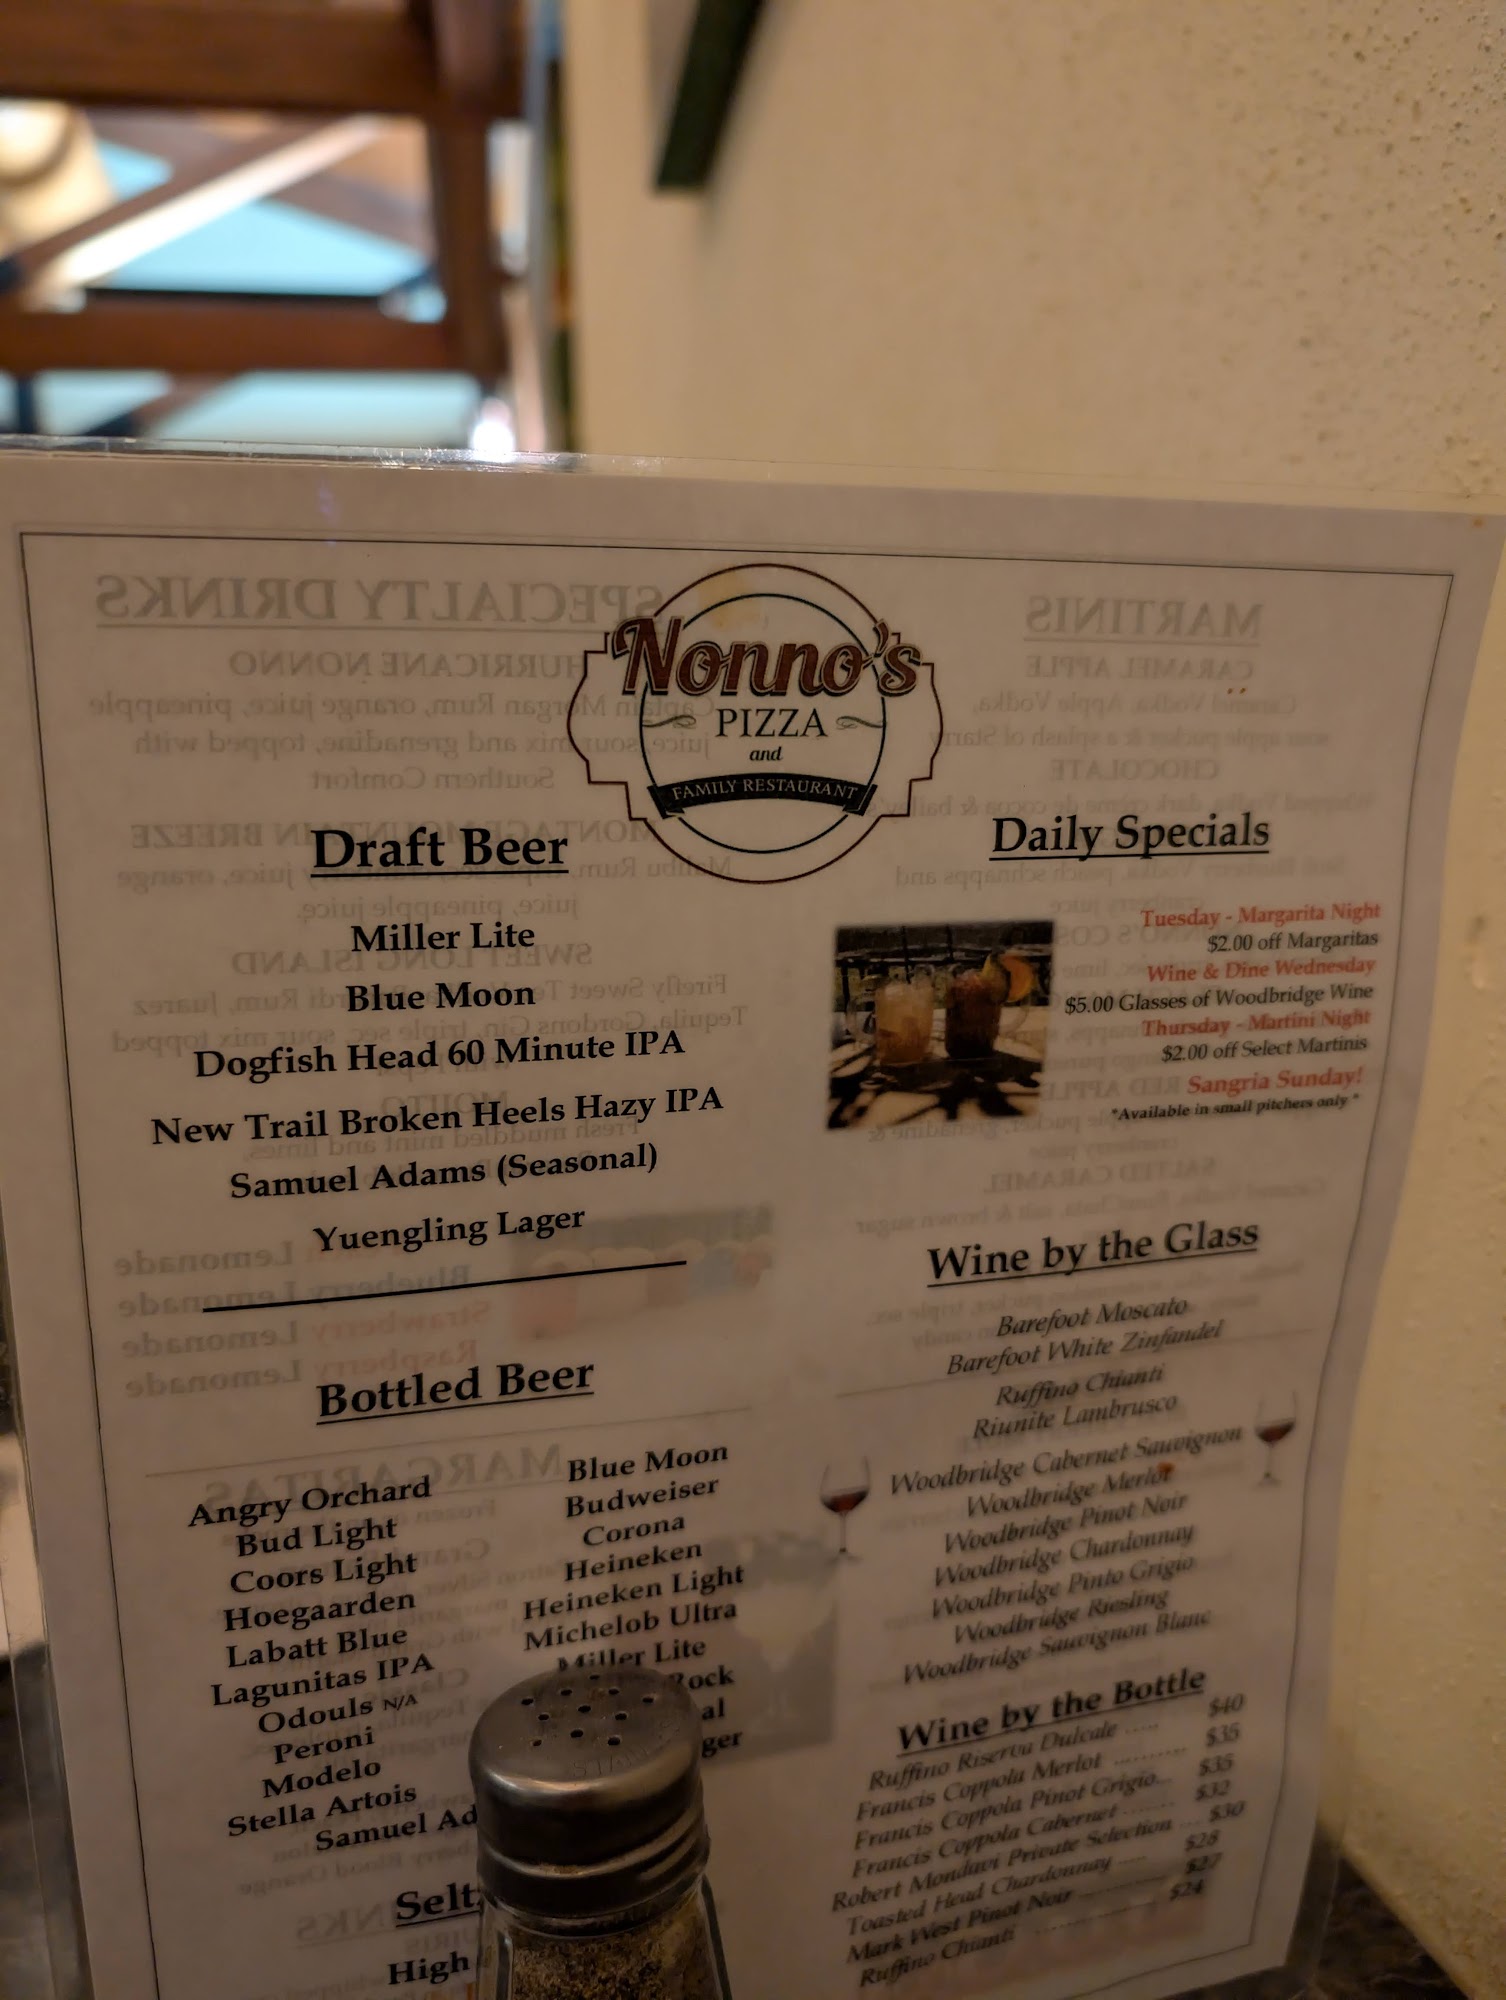 Nonno's
PIZZA
and
FAMILY RESTAURANT
Draft Beer
Miller Lite
Blue Moon
Dogfish Head 60 Minute IPA
New Trail Broken Heels Hazy IPA
Samuel Adams (Seasonal)
Yuengling Lager
Bottled Beer
Angry Orchard
Bud Light
Coors Light
Hoegaarden
Labatt Blue
Lagunitas IPA
Odouls N/A
Peroni
Modelo
Stella Artois
Samuel Ad
Blue Moon
Budweiser
Corona
Heineken
Heineken Light
Michelob Ultra
Miller Lite
Rock
al
ger
Seltz
High
Daily Specials
Tuesday - Margarita Night
$2.00 off Margaritas
Wine & Dine Wednesday
$5.00 Glasses of Woodbridge Wine
Thursday - Martini Night
$2.00 off Select Martinis
Sangria Sunday!
*Available in small pitchers only *
Wine by the Glass
Barefoot Moscato
Barefoot White Zinfandel
Ruffino Chianti
Riunite Lambrusco
Woodbridge Cabernet Sauvignon
Woodbridge Merlot
Woodbridge Pinot Noir
Woodbridge Chardonnay
Woodbridge Pinto Grigio
Woodbridge Riesling
Woodbridge Sauvignon Blanc
Wine by the Bottle
Ruffino Riserva Dulcale ..... $40
Francis Coppola Merlot .......... $35
Francis Coppola Pinot Grigio... $35
Francis Coppola Cabernet ........ $32
Robert Mondavi Private Selection ... $30
Toasted Head Chardonnay ..... $28
Mark West Pinot Noir ............ $27
Ruffino Chianti .................. $24